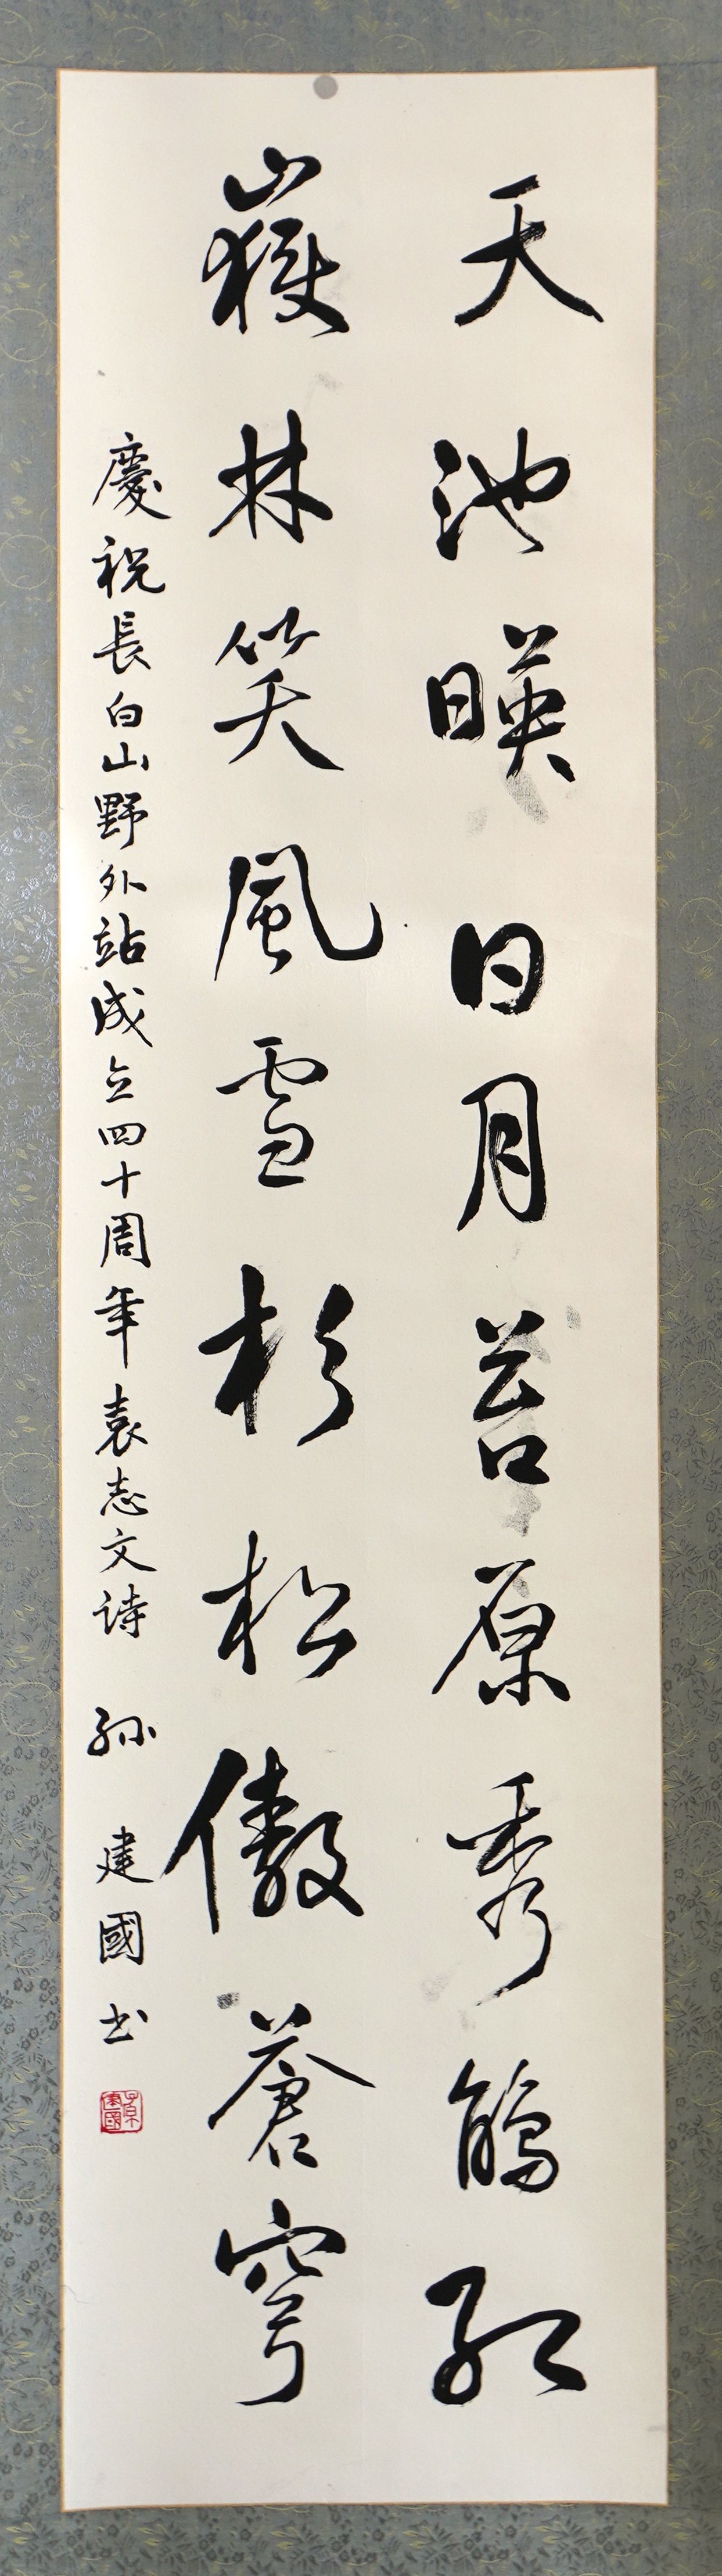 天池暎日月苔原秀鵑紅
嶽林笑風雪杉松傲蒼穹
慶祝長白山野外站成立四十周年袁志文诗 孫建國书